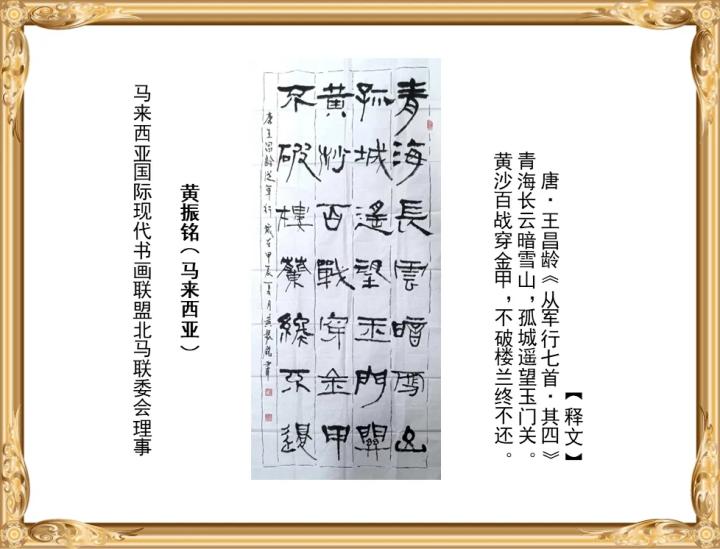 【释文】
唐·王昌龄《从军行七首·其四》
青海长云暗雪山，孤城遥望玉门关。
黄沙百战穿金甲，不破楼兰终不还。
青海長雲暗雪山
孤城遙望玉門關
黄沙百戰穿金甲
不破樓蘭終不還
唐王昌龄從軍行 歲在甲辰夏月黃振銘書
黄振铭（马来西亚）
马来西亚国际现代书画联盟北马联委会理事